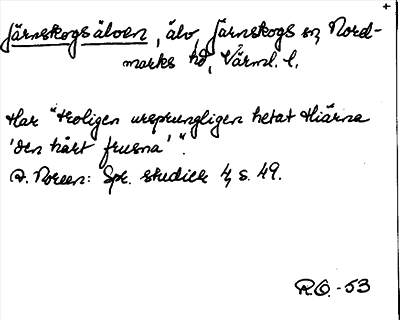 +
Järnskogsälven, älv, Järnskogs sn, Nord-
marks hd, Värml. l.
Har "troligen ursprungligen hetat Hiärna
'den hårt frusna'".
A. Noreen: Spr. studier 4, s. 49.
R.O.-53